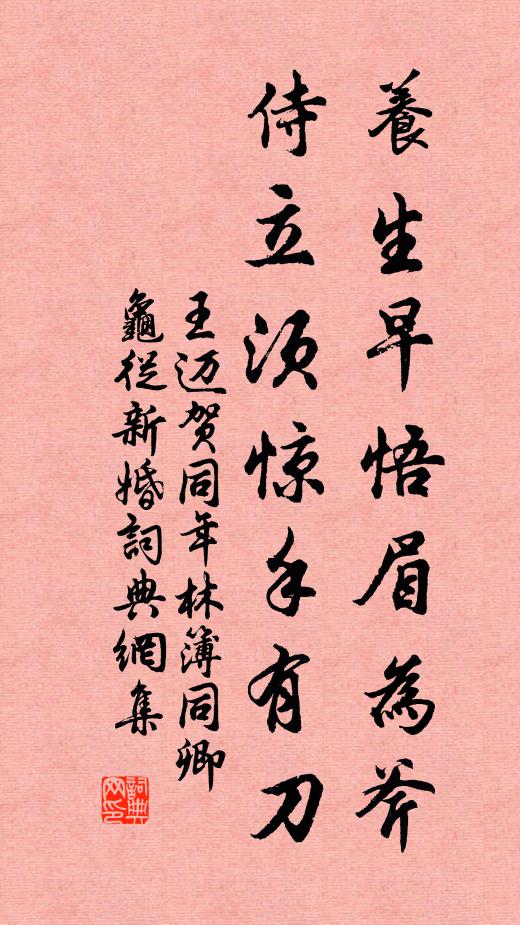 養生早悟眉為斧
侍立须惊手有刀
王迈贺同年林簿同卿
龜從新婚詞典網集
詞典网印